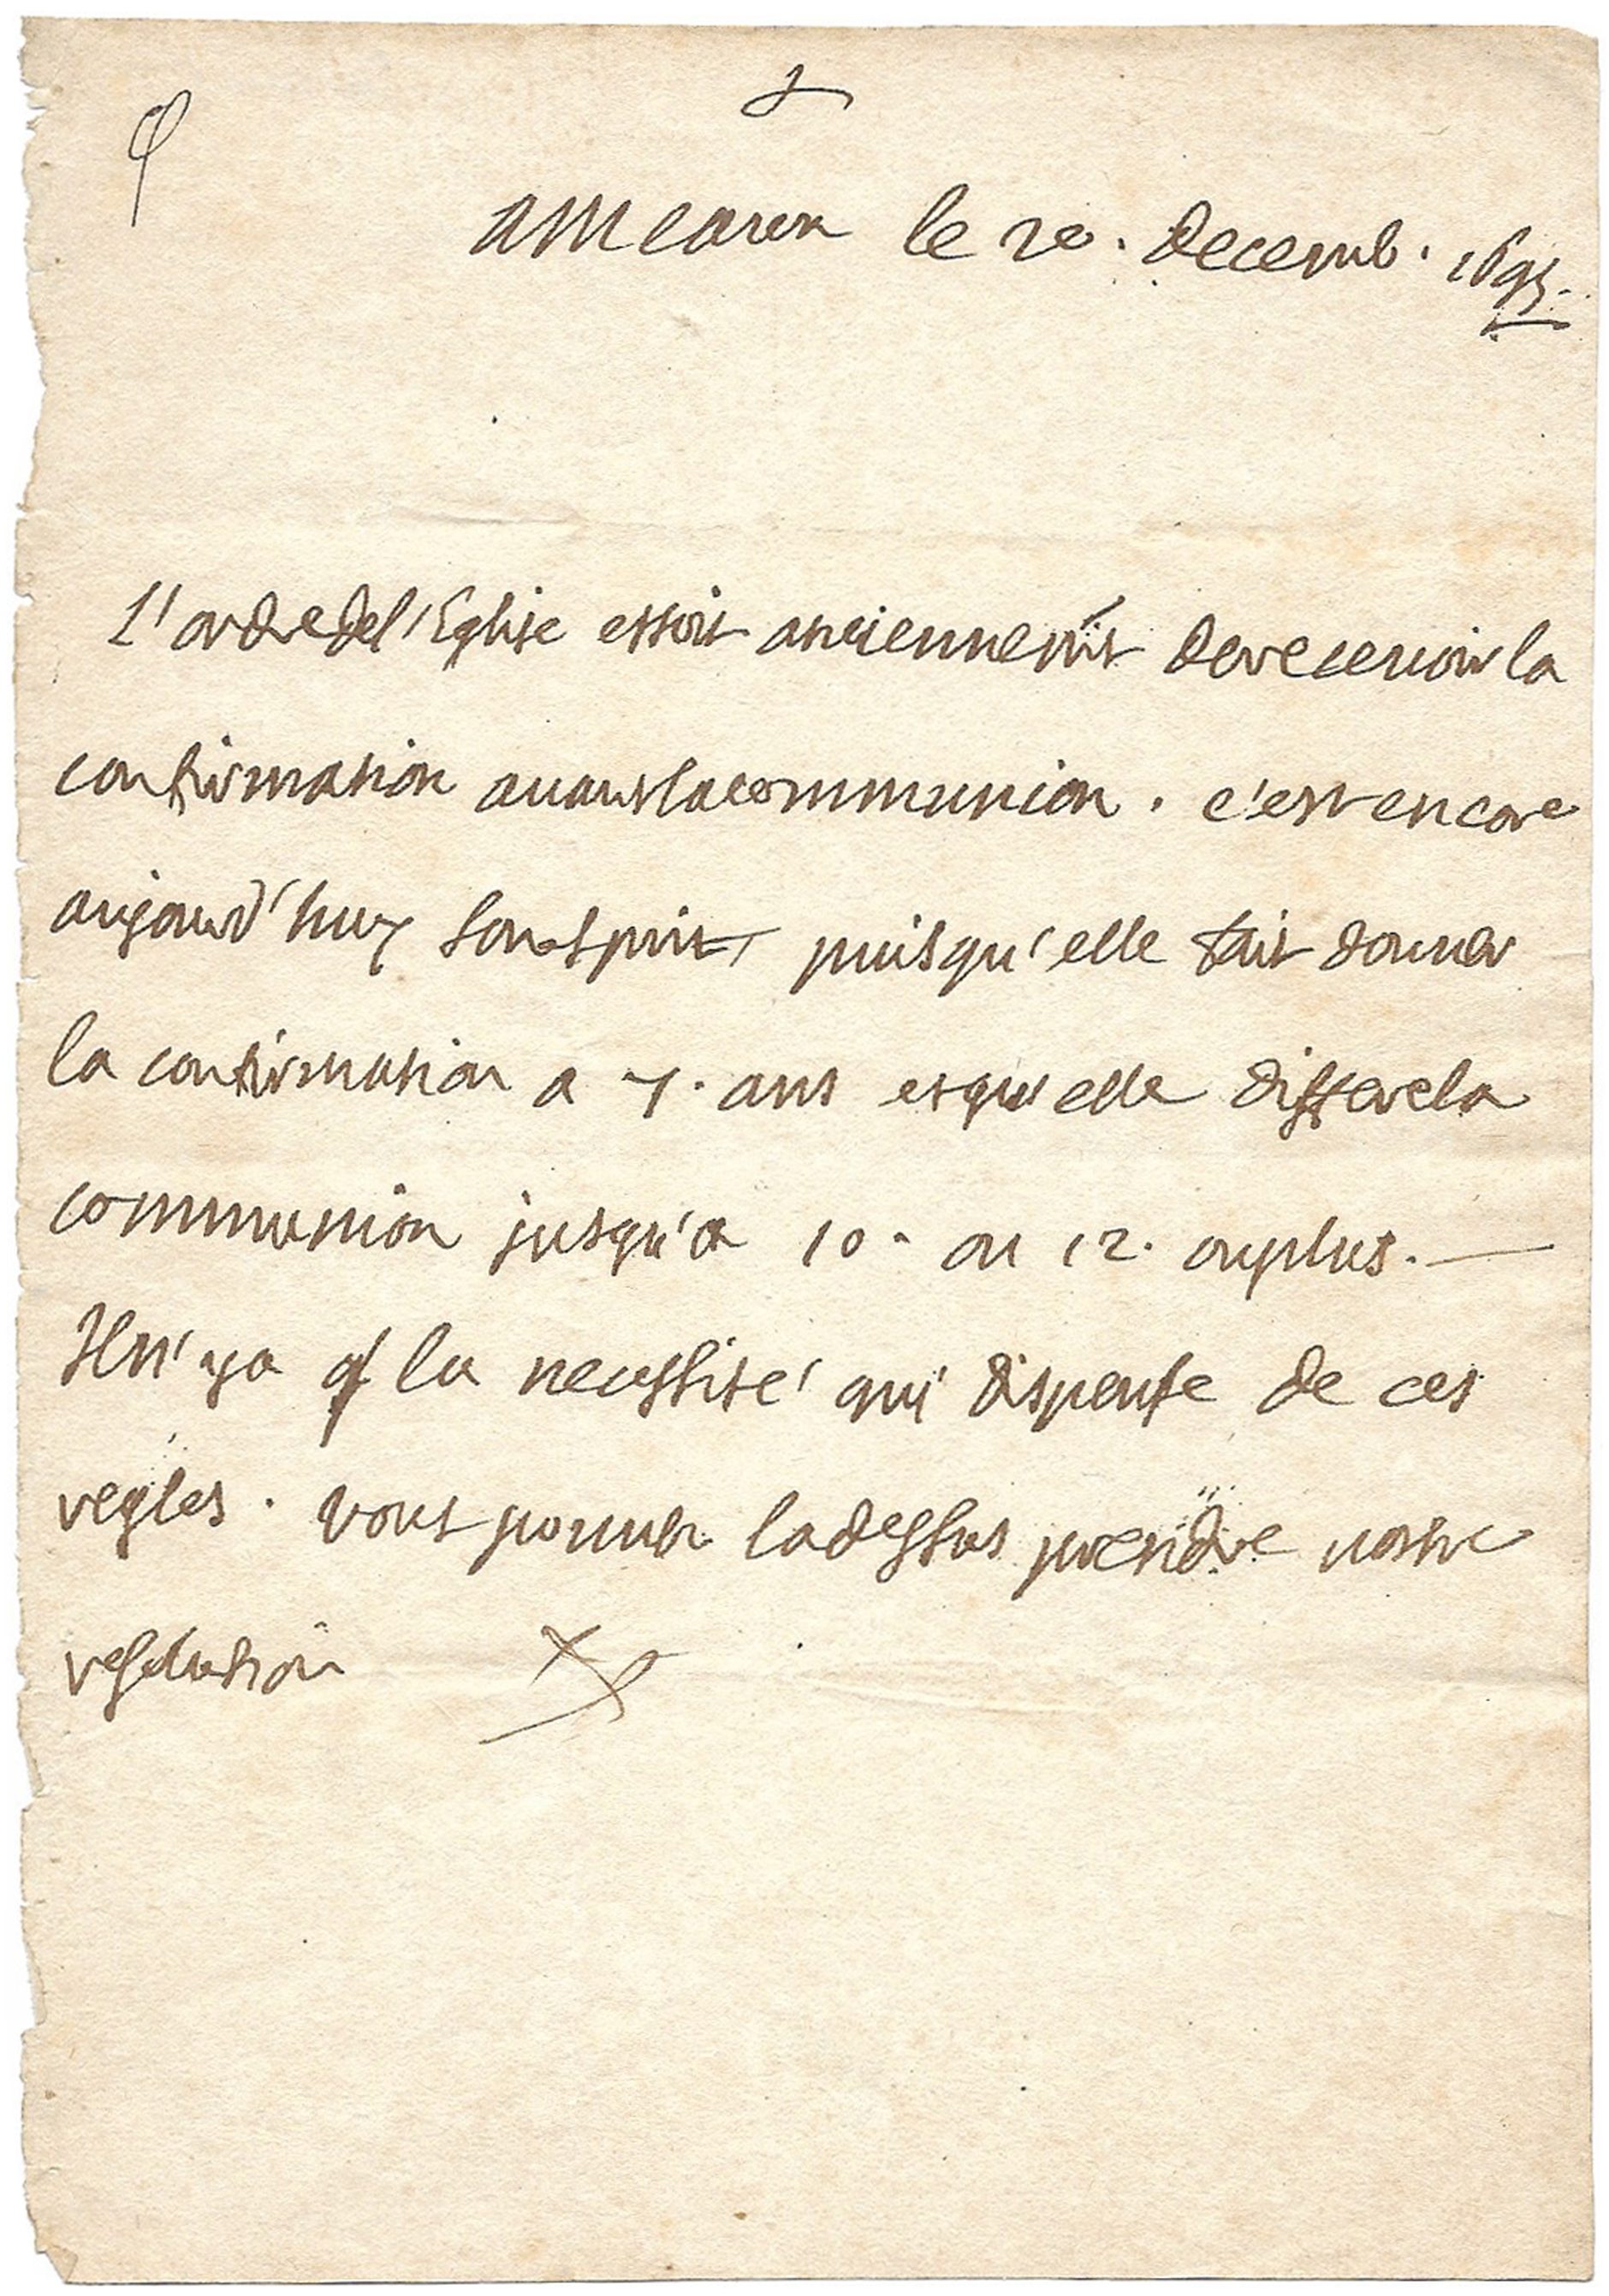 a Meaux le 20. decemb. 1695.
L'ordre de l'Eglise estoit anciennement de recevoir la
confirmation auant la communion. c'est encore
aujourd'huy son esprit, puisqu'elle fait donner
la confirmation a 7. ans et qu'elle differe la
communion jusqu'a 10. ou 12. ou plus. —
Il n'y a q la necessité qui dispense de ces
regles. Vous pouuez la dessus prendre vostre
resolution